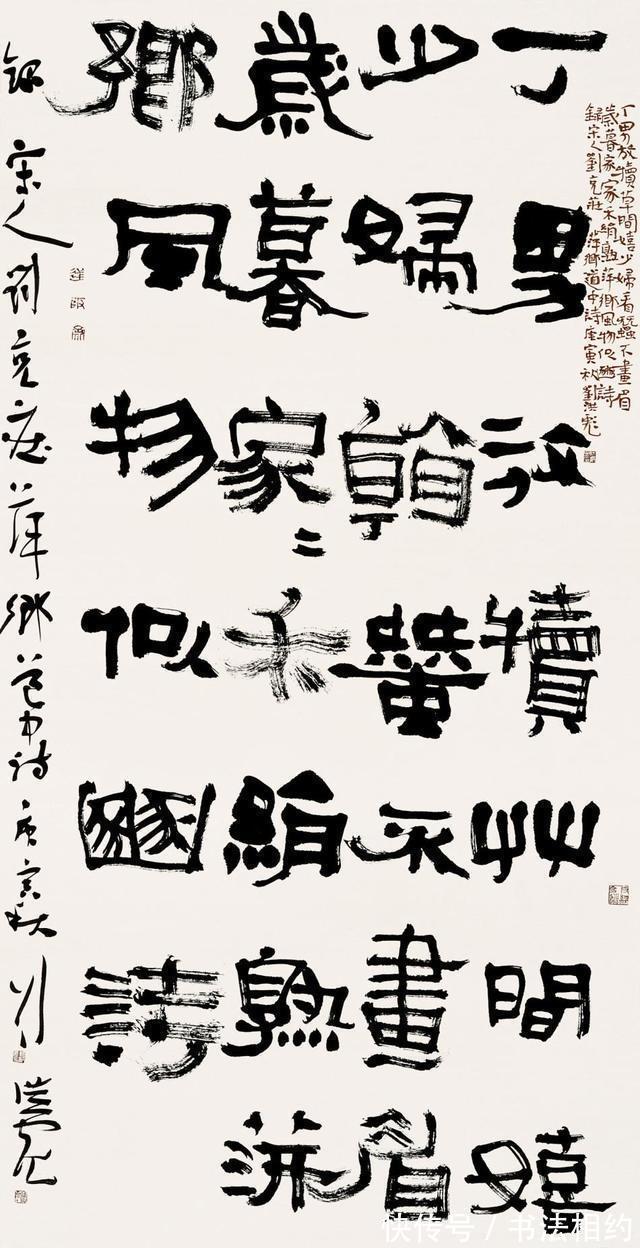 丁男放犢草間嬉少婦看蠶不畫眉
歲暮家家禾絹熟萍鄉風物似豳詩
錄宋人劉克莊萍鄉道中詩庚寅秋劉洪彪
丁男放犢艸間嬉
少婦看蠶不畫眉
歲暮家二禾絹熟萍
鄉風物似豳詩
錄宋人劉克莊萍鄉道中詩庚寅秋劉洪彪
快传号 / 书法相约